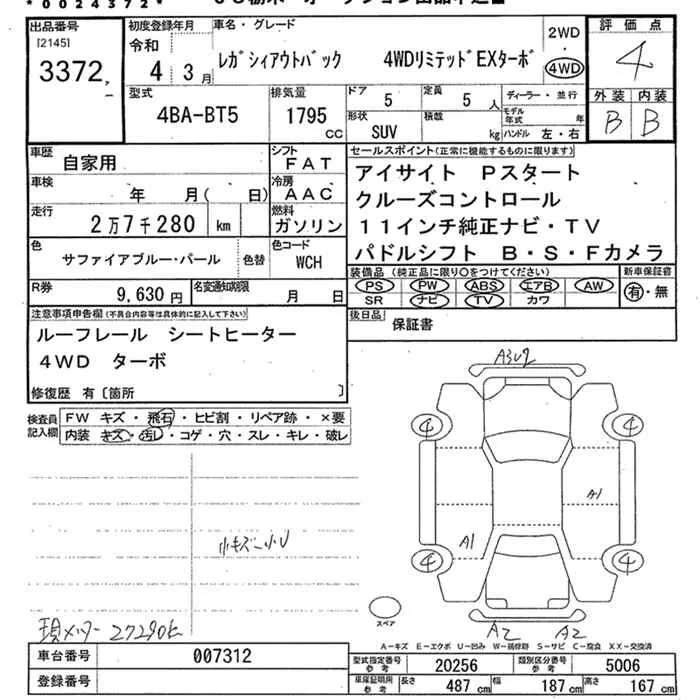 *0024372*
出品番号
[2145]
3372
初度登録年月
令和
4 3月
車名・グレード
レガシィアウトバック 4WDリミテッドEXターボ
2WD
・
4WD
評価点
4
外装 内装
B B
型式
4BA-BT5
排気量
1795
CC
ドア
5
定員
5人
形状
SUV
積載
kg
ディーラー・並行
モデル年式 年
ハンドル 左・右
車歴
自家用
シフト
FAT
車検
年 月( 日)
冷房
AAC
走行
2万7千280 km
燃料
ガソリン
色
サファイアブルー・パール
色替
色コード
WCH
R券
9,630円
名変通知期限
月 日
セールスポイント(正常に機能するものに限ります)
アイサイト Pスタート
クルーズコントロール
11インチ純正ナビ・TV
パドルシフト B・S・Fカメラ
装備品(純正品に限り〇をつけてください)
PS PW ABS エアB AW
SR ナビ TV カワ
新車保証書
有・無
後日品
保証書
注意事項申告欄(不具合内容等は具体的に記入して下さい)
ルーフレール シートヒーター
4WD ターボ
修復歴 有〔箇所 〕
検査員
記入欄
FW キズ・飛石・ヒビ割・リペア跡・×要
内装 キズ・汚レ・コゲ・穴・スレ・キレ・破レ
A3U2
4
4
A1
A1
4
4
小キズ〜小U
スペア
A2 A2
現メーター 27290k
A-キズ E-エクボ U-凹み W-補修跡 S-サビ C-腐食 XX-交換済
車台番号
007312
登録番号
型式指定番号
参考
20256
類別区分番号
参考
5006
車庫証明用
参考
長さ
487cm
幅
187cm
高さ
167cm